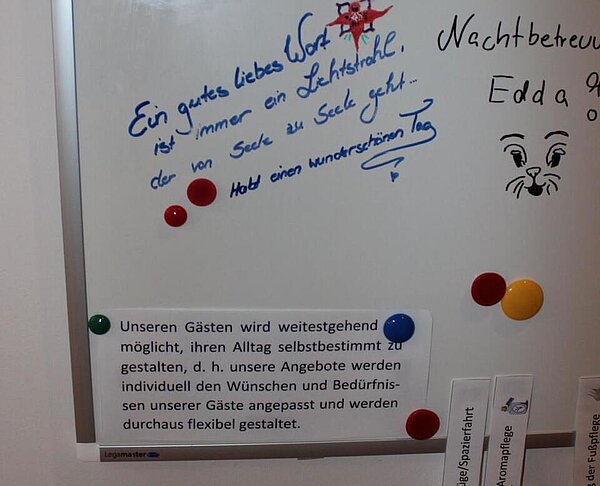 Ein gutes liebes Wort
ist immer ein Lichtstrahl,
der von Seele zu Seele geht...
Habt einen wunderschönen Tag
Nachtbetreuu
Edda
Unseren Gästen wird weitestgehend
möglicht, ihren Alltag selbstbestimmt zu
gestalten, d. h. unsere Angebote werden
individuell den Wünschen und Bedürfnis-
sen unserer Gäste angepasst und werden
durchaus flexibel gestaltet.
Legamaster
üge/Spazierfahrt
Aromapflege
s der Fußpflege